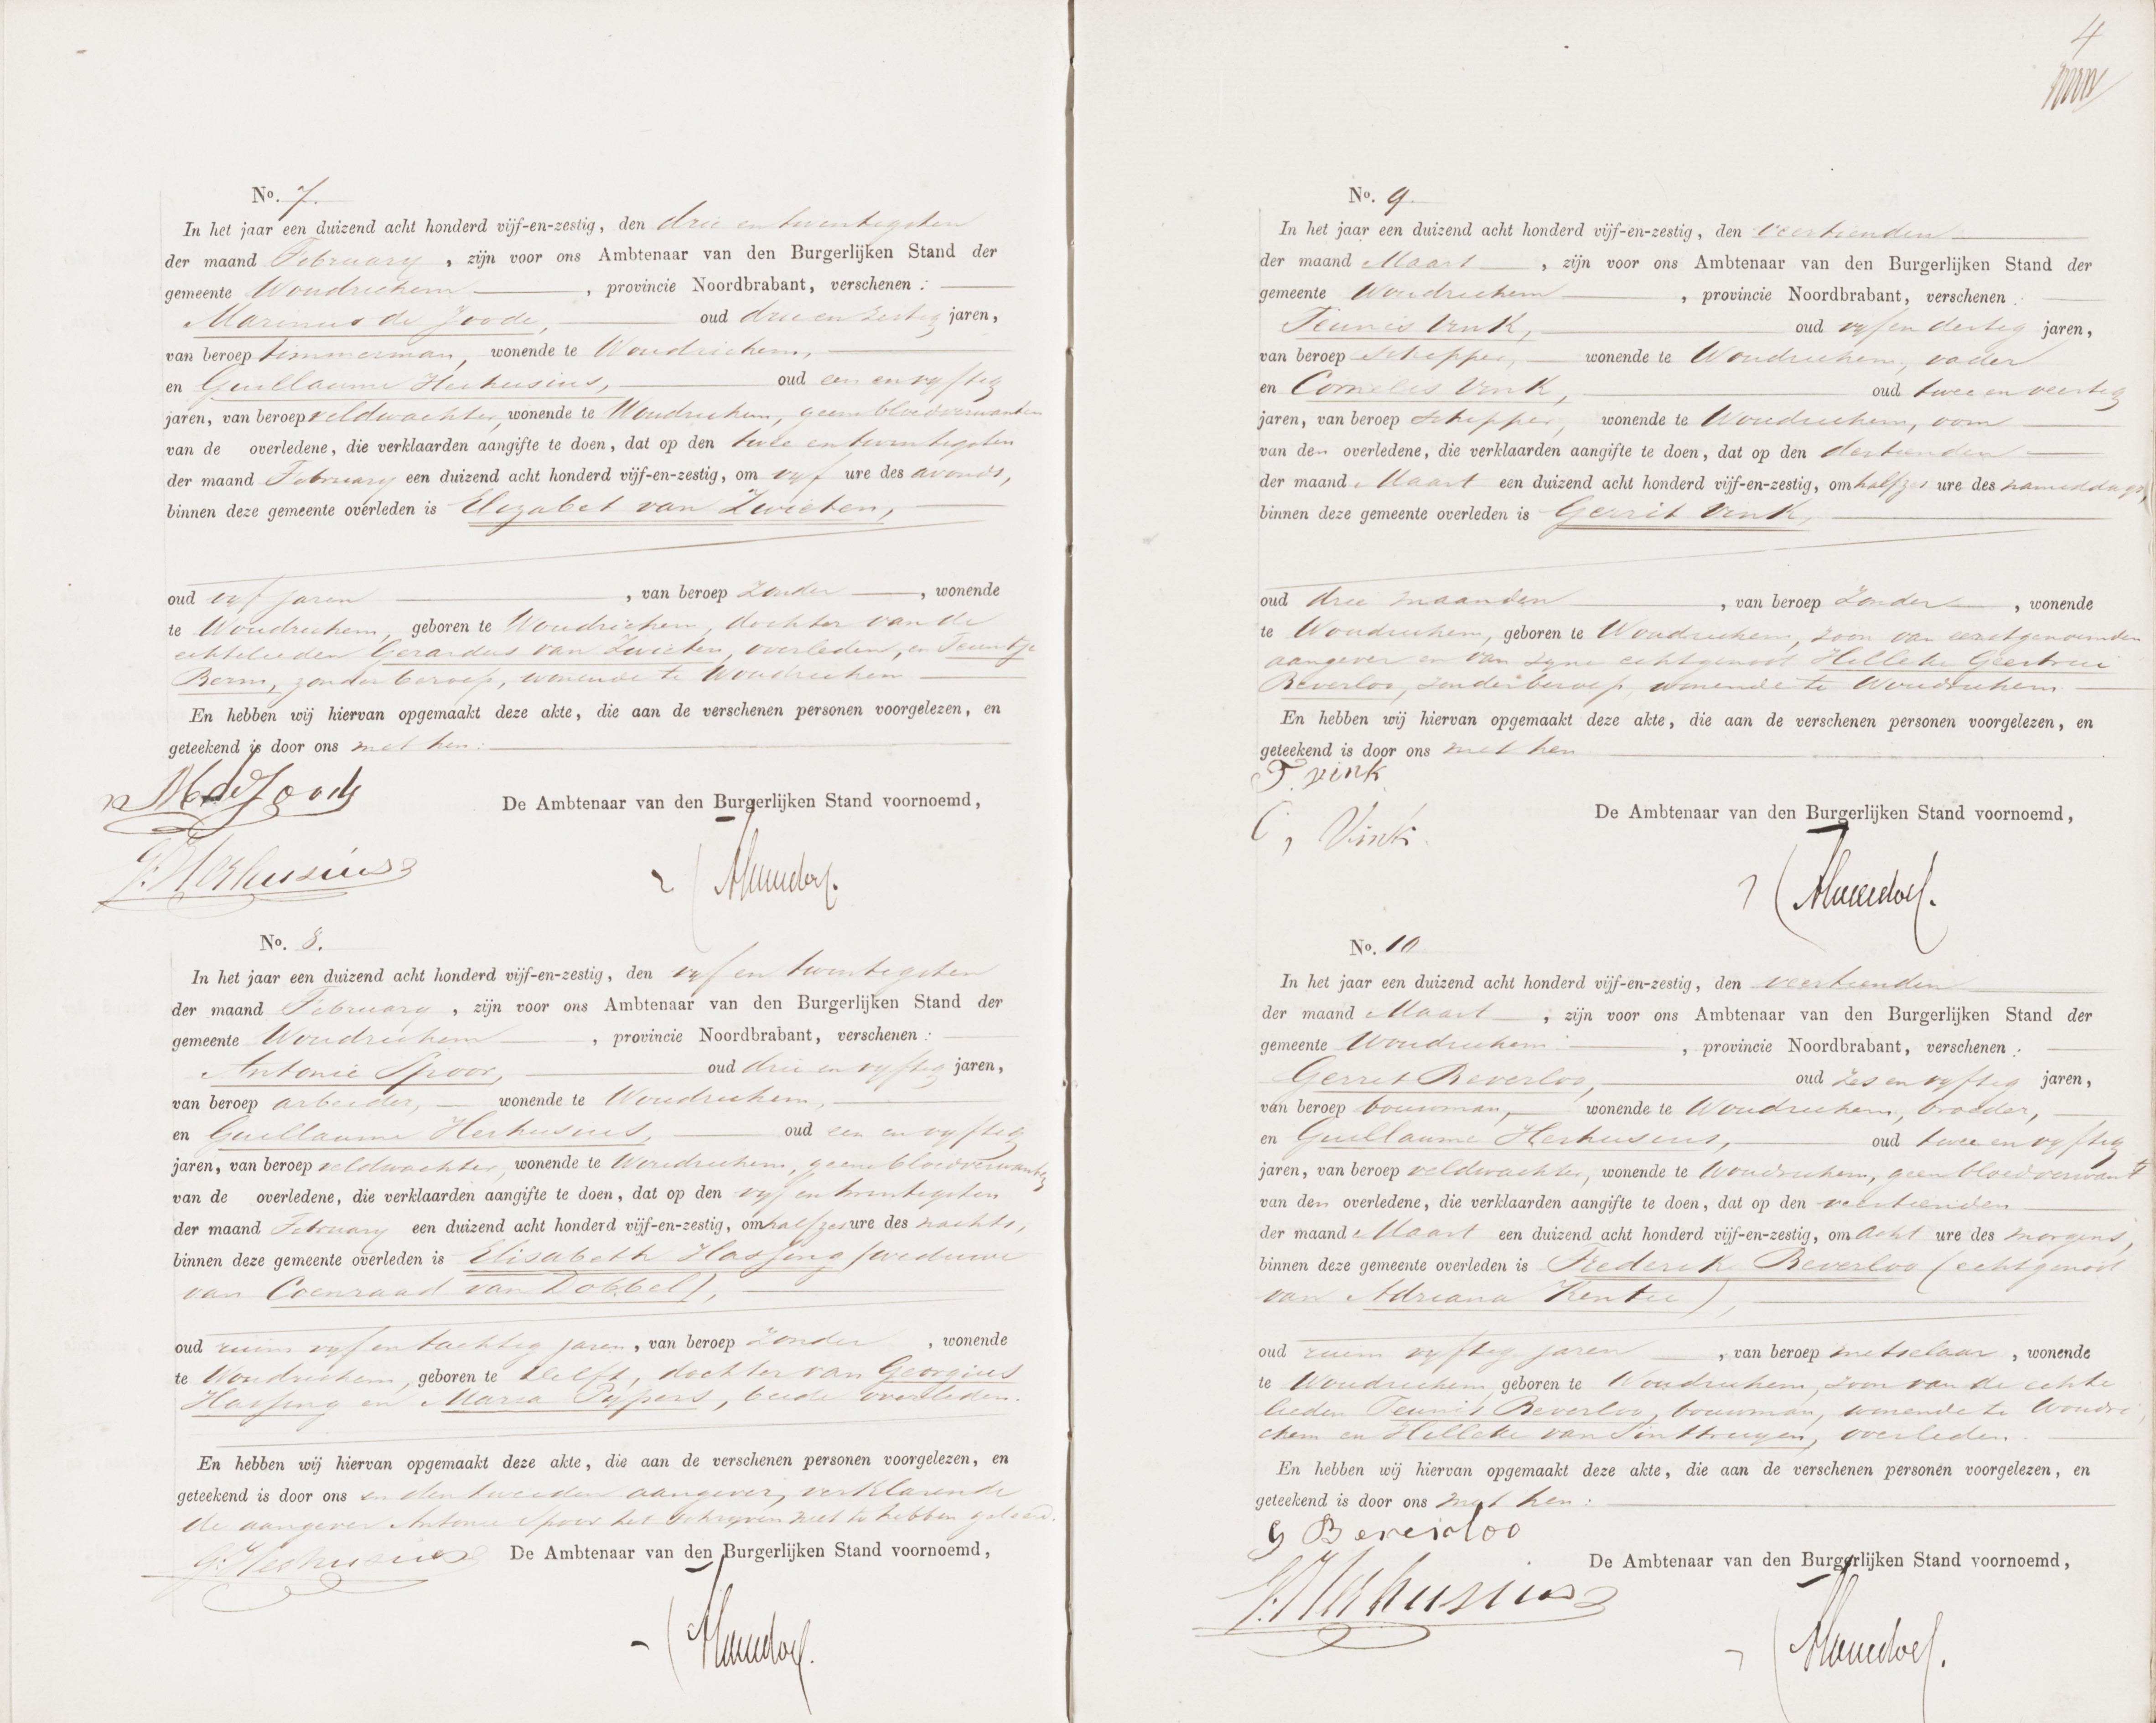 No. 7.
In het jaar een duizend acht honderd vijf-en-zestig, den drie en twentigsten
der maand February, zijn voor ons Ambtenaar van den Burgerlijken Stand der
gemeente Woudrichem, provincie Noordbrabant, verschenen:
Marinus de Joode, oud drie en zestig jaren,
van beroep timmerman, wonende te Woudrichem,
en Guillaume Herhusius, oud een en vyftig
jaren, van beroep veldwachter, wonende te Woudrichem, geene bloedverwanten
van de overledene, die verklaarden aangifte te doen, dat op den twee en twentigsten
der maand February een duizend acht honderd vijf-en-zestig, om vyf ure des avonds,
binnen deze gemeente overleden is Elizabet van Zwieten,
oud vyf jaren, van beroep zonder, wonende
te Woudrichem, geboren te Woudrichem, dochter van de
echtelieden Gerardus van Zwieten, overleden, en Teuntje
Borm, zonder beroep, wonende te Woudrichem
En hebben wij hiervan opgemaakt deze akte, die aan de verschenen personen voorgelezen, en
geteekend is door ons met hen:
M de Joode
De Ambtenaar van den Burgerlijken Stand voornoemd,
G. Herhusius
No. 8.
In het jaar een duizend acht honderd vijf-en-zestig, den vyf en twentigsten
der maand February, zijn voor ons Ambtenaar van den Burgerlijken Stand der
gemeente Woudrichem, provincie Noordbrabant, verschenen:
Antonie Spoor, oud drie en vyftig jaren,
van beroep arbeider, wonende te Woudrichem,
en Guillaume Herhusius, oud een en vyftig
jaren, van beroep veldwachter, wonende te Woudrichem, geene bloedverwanten
van de overledene, die verklaarden aangifte te doen, dat op den vyf en twentigsten
der maand February een duizend acht honderd vijf-en-zestig, om half zes ure des nachts,
binnen deze gemeente overleden is Elisabeth Hassing (weduwe
van Coenraad van Dobbel),
oud ruim vyf en tachtig jaren, van beroep zonder, wonende
te Woudrichem, geboren te Delft, dochter van Georgius
Hassing en Maria Pypers, beide overleden.
En hebben wij hiervan opgemaakt deze akte, die aan de verschenen personen voorgelezen, en
geteekend is door ons en den tweeden aangever, verklarende
de aangever Antonie Spoor het schryven niet te hebben geleerd.
G. Herhusius
De Ambtenaar van den Burgerlijken Stand voornoemd,
4
No. 9.
In het jaar een duizend acht honderd vijf-en-zestig, den veertienden
der maand Maart, zijn voor ons Ambtenaar van den Burgerlijken Stand der
gemeente Woudrichem, provincie Noordbrabant, verschenen:
Teunis Vink, oud vyf en dertig jaren,
van beroep schipper, wonende te Woudrichem, vader
en Cornelis Vink, oud twee en veertig
jaren, van beroep schipper, wonende te Woudrichem, oom
van den overledene, die verklaarden aangifte te doen, dat op den dertienden
der maand Maart een duizend acht honderd vijf-en-zestig, om half zes ure des namiddags,
binnen deze gemeente overleden is Gerrit Vink,
oud drie maanden, van beroep zonder, wonende
te Woudrichem, geboren te Woudrichem, zoon van eerstgenoemden
aangever en van zyne echtgenoot Hilleke Geertrui
Beverloo, zonder beroep, wonende te Woudrichem
En hebben wij hiervan opgemaakt deze akte, die aan de verschenen personen voorgelezen, en
geteekend is door ons met hen
T. vink
De Ambtenaar van den Burgerlijken Stand voornoemd,
C, Vink
No. 10
In het jaar een duizend acht honderd vijf-en-zestig, den veertienden
der maand Maart, zijn voor ons Ambtenaar van den Burgerlijken Stand der
gemeente Woudrichem, provincie Noordbrabant, verschenen:
Gerret Beverloo, oud zes en vyftig jaren,
van beroep bouwman, wonende te Woudrichem, broeder,
en Guillaume Herhusius, oud twee en vyftig
jaren, van beroep veldwachter, wonende te Woudrichem, geen bloedverwant
van den overledene, die verklaarden aangifte te doen, dat op den veertienden
der maand Maart een duizend acht honderd vijf-en-zestig, om acht ure des morgens,
binnen deze gemeente overleden is Frederik Beverloo (echtgenoot
van Adriana Kentie),
oud ruim vyftig jaren, van beroep metselaar, wonende
te Woudrichem, geboren te Woudrichem, zoon van de echte
lieden Teunis Beverloo, bouwman, wonende te Woudri
chem en Hilleke van Tinthuyen, overleden.
En hebben wij hiervan opgemaakt deze akte, die aan de verschenen personen voorgelezen, en
geteekend is door ons met hen:
G Beverloo
De Ambtenaar van den Burgerlijken Stand voornoemd,
G. Herhusius